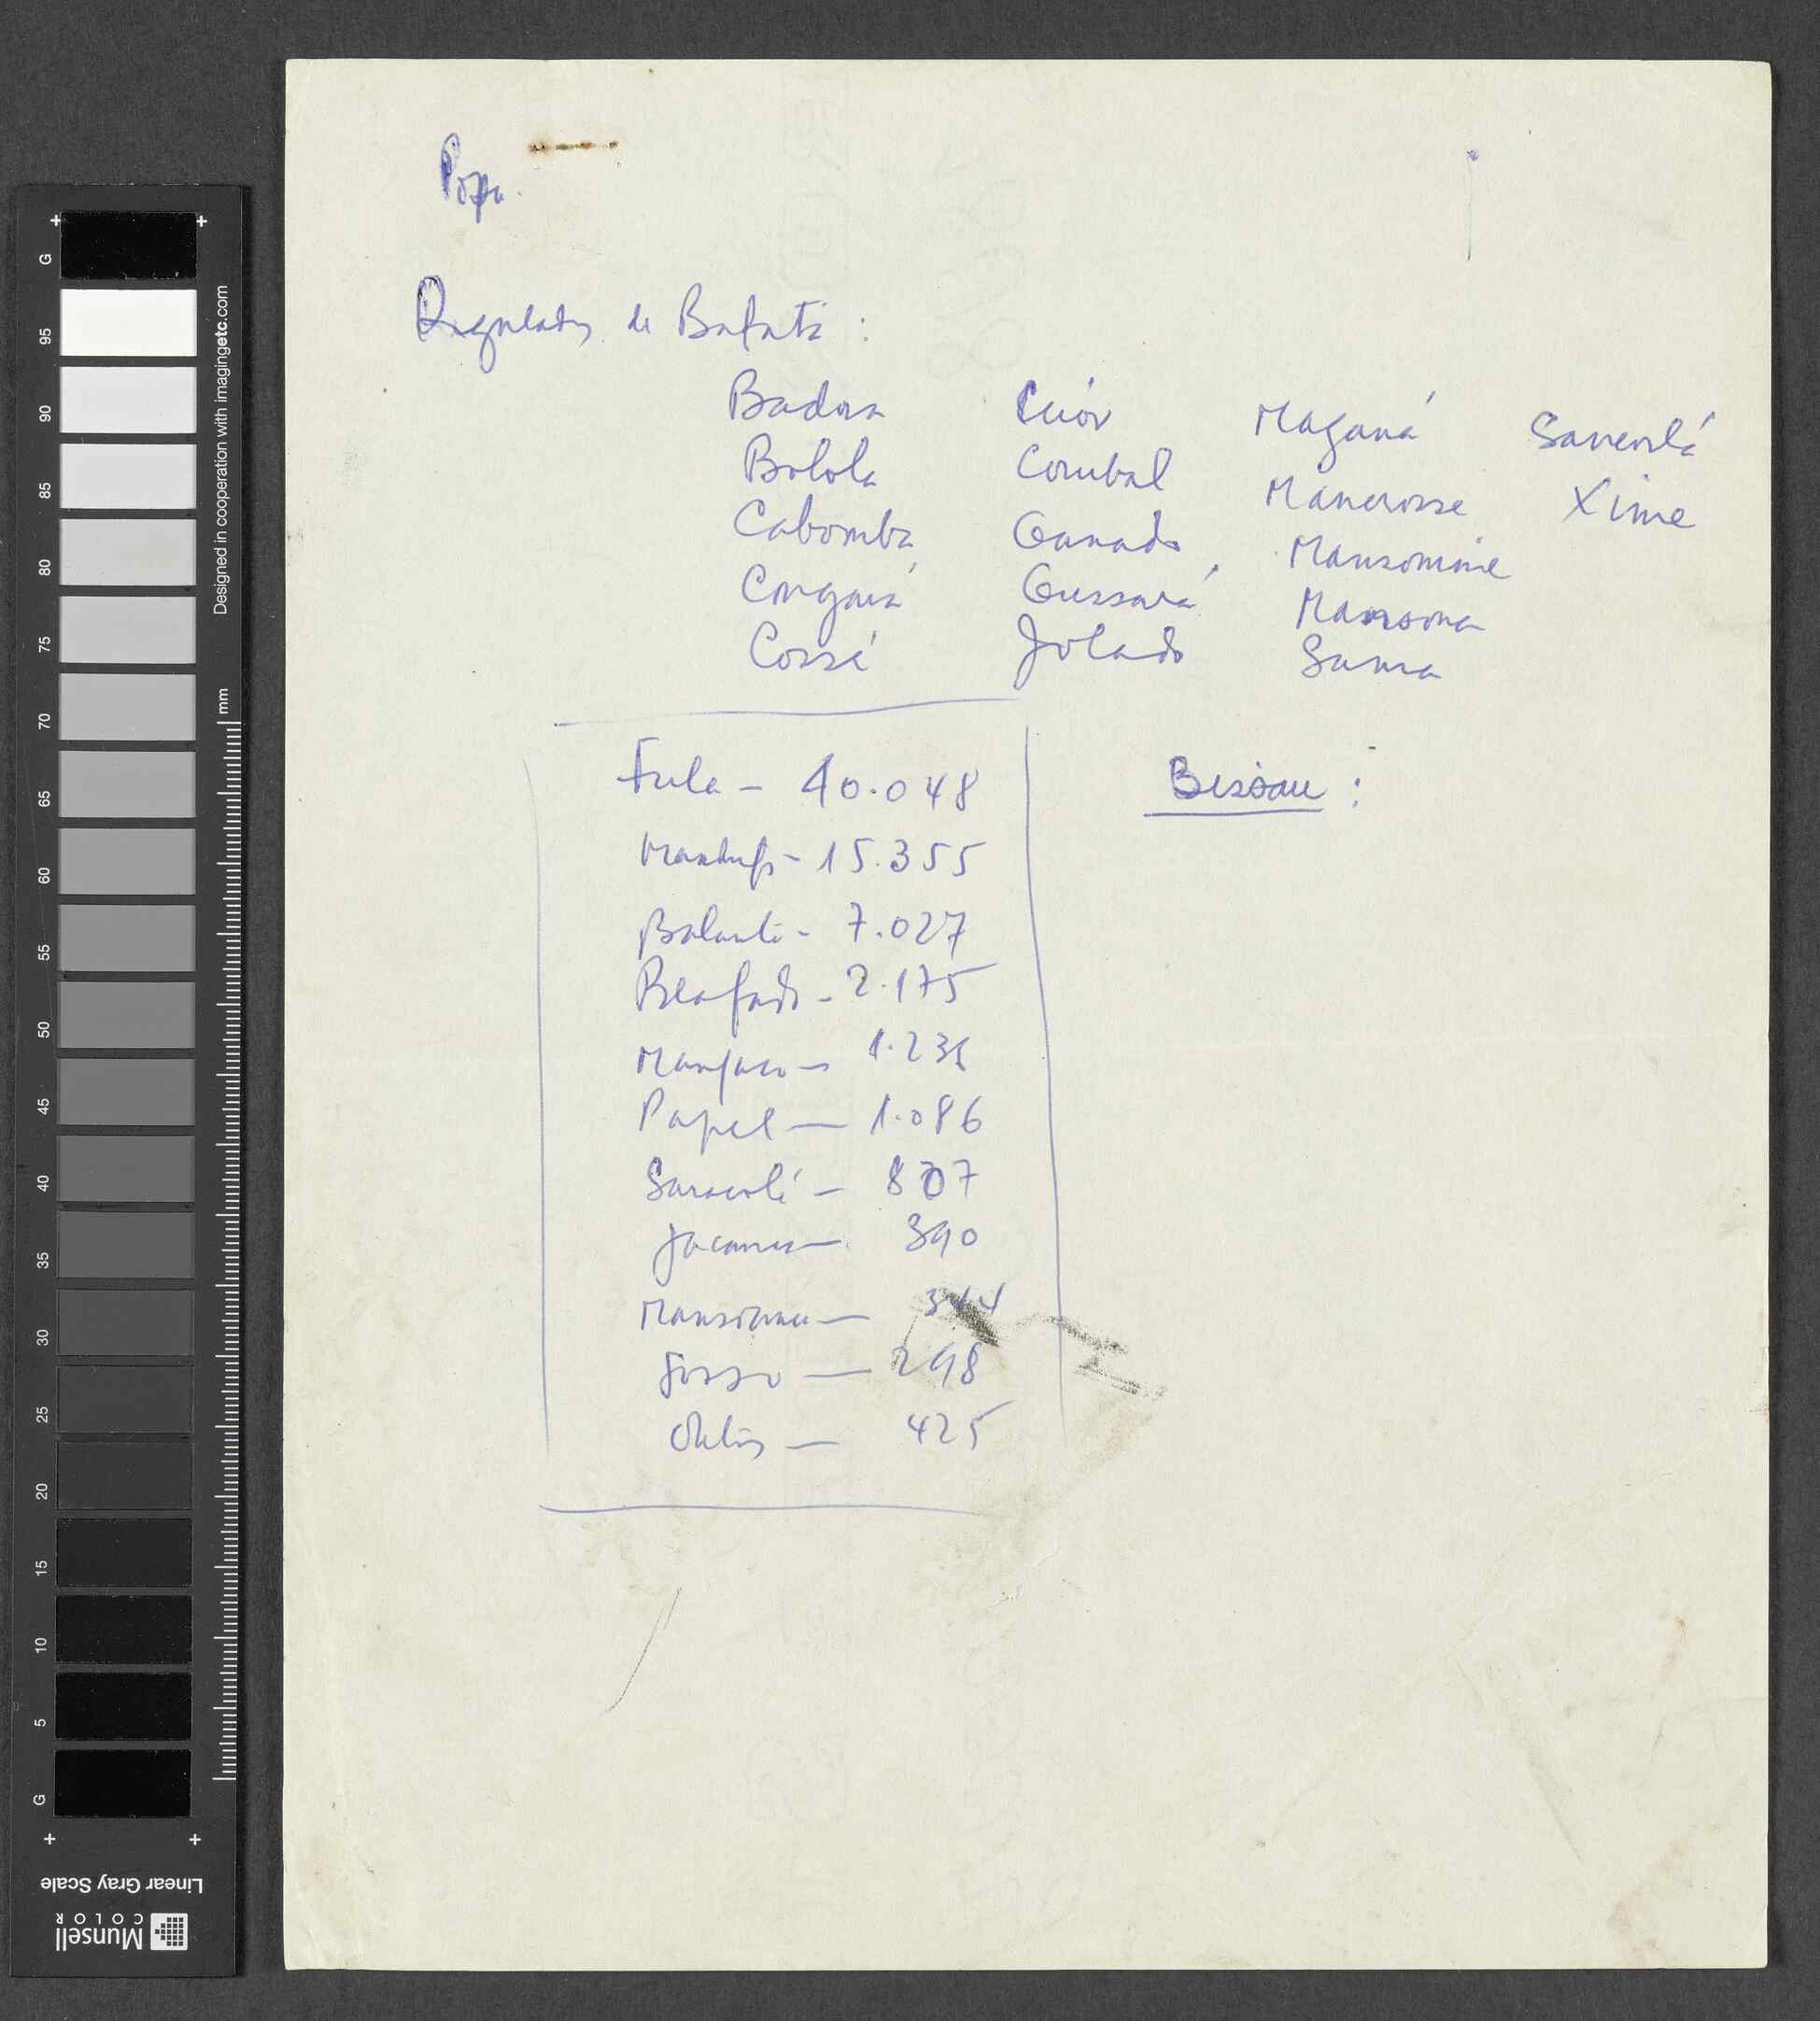 Popu.
Regulados de Bafatá :
Badora Cuór Maganá Sancorlá
Bolola Corubal Mancrosse Xime
Cabomba Ganado Mansomine
Congaiá Gussará Mansona
Cossé Joladо Sama
Fula - 40.048
Mandinga - 15.355
Balanta - 7.027
Beafada - 2.175
Manjaco - 1.236
Papel - 1.086
Saracolé - 807
Jacanca - 390
Mansoanca - 344
Sosso - 298
Outros - 425
Bissau :
G
95
90
85
80
75
70
65
60
55
50
45
40
35
30
25
20
15
10
5
G
Designed in cooperation with imagingetc.com
mm
Linear Gray Scale
Munsell
COLOR